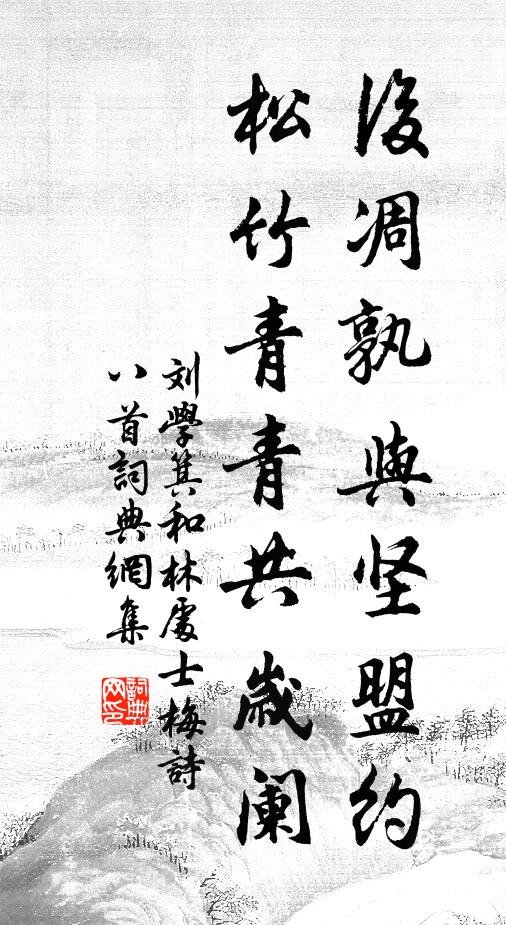 後凋孰與坚盟约
松竹青青共歲阑
刘學箕和林處士梅詩
八首詞典網集
詞典
网印